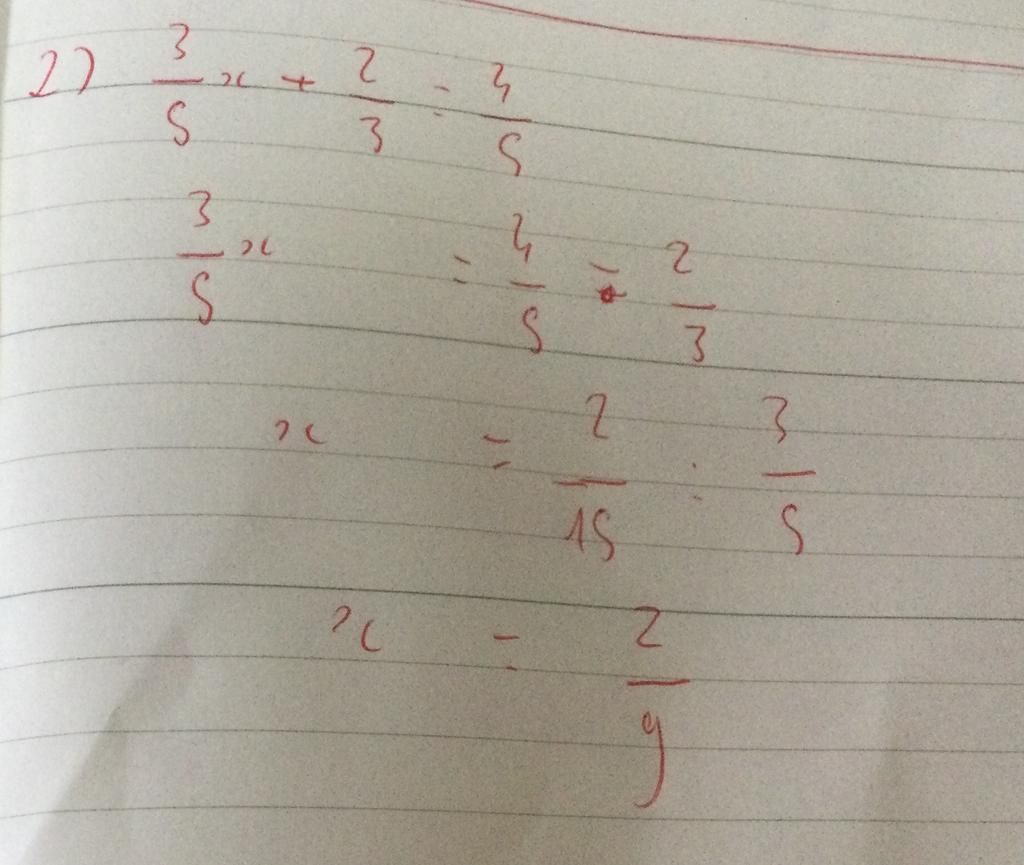 2) 3/5 x + 2/3 = 4/5
3/5 x = 4/5 - 2/3
x = 2/15 : 3/5
x = 2/9